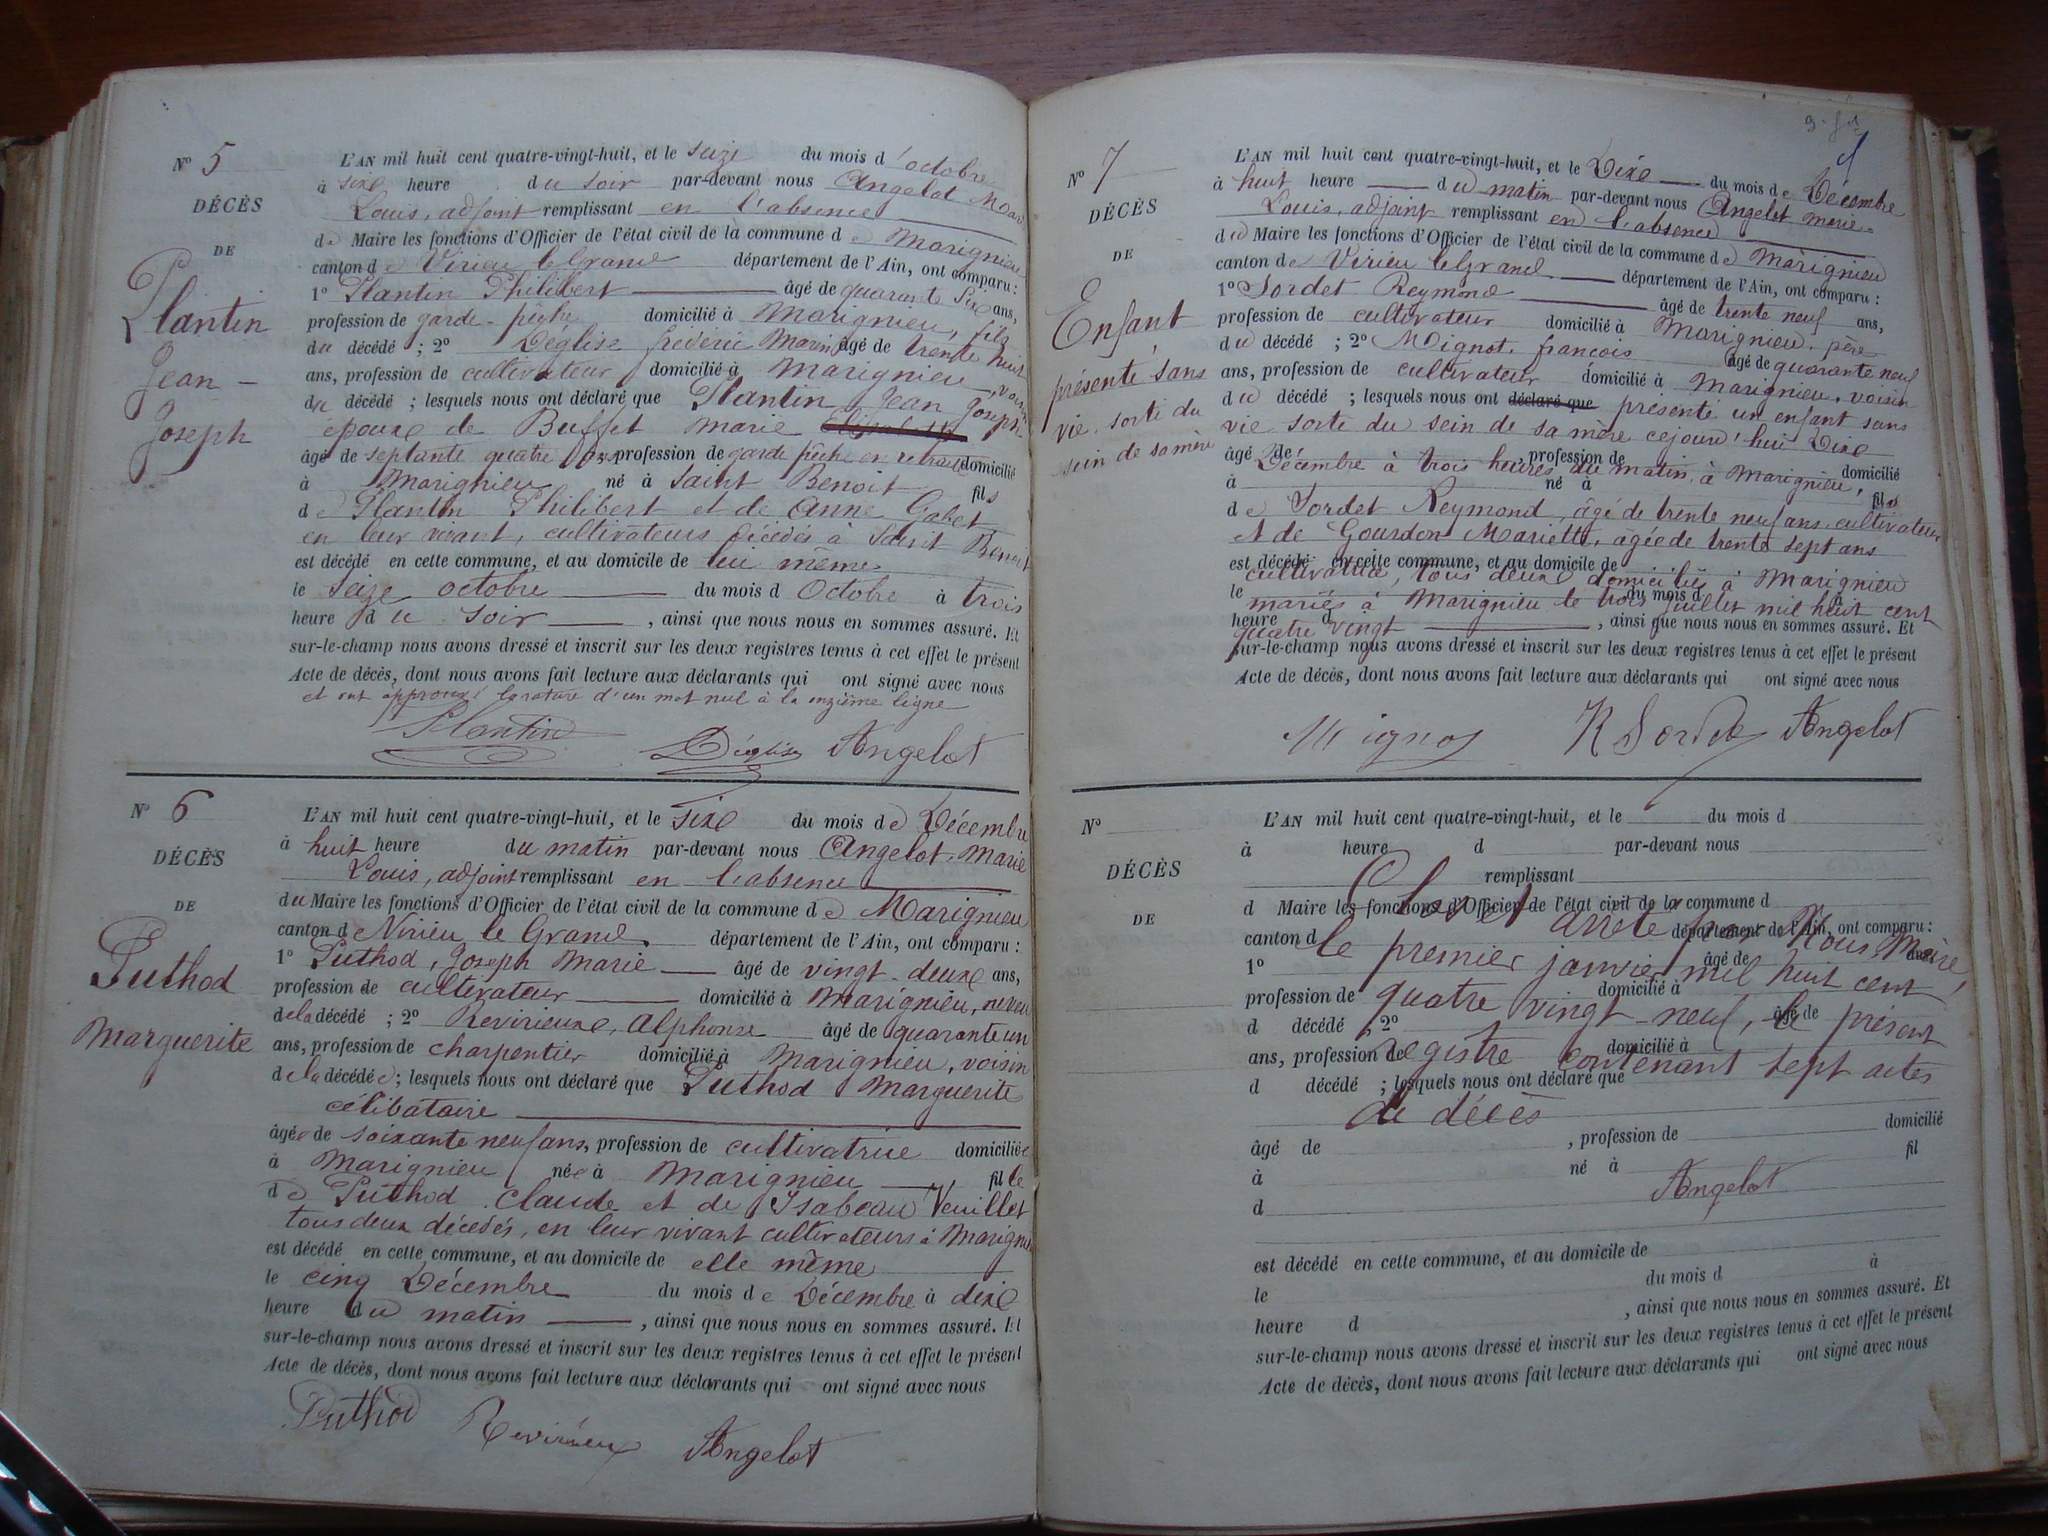 N° 5
DÉCÈS
DE
Plantin
Jean -
Joseph
L'AN mil huit cent quatre-vingt-huit, et le seize du mois d'octobre
à six heure du soir par-devant nous Angelot Marie
Louis, adjoint remplissant en l'absence
de Maire les fonctions d'Officier de l'état civil de la commune de Marignieu
canton de Virieu le Grand département de l'Ain, ont comparu :
1° Plantin Philibert âgé de quarante six ans,
profession de garde-pêche domicilié à Marignieu, fils
du décédé ; 2° Déglise frédéric Marin âgé de trente huit
ans, profession de cultivateur domicilié à Marignieu, voisin
du décédé ; lesquels nous ont déclaré que Plantin Jean Joseph
époux de Buffet Marie
âgé de septante quatre ans, profession de garde pêche en retraite domicilié
à Marignieu né à Saint Benoit fils
de Plantin Philibert et de Anne Gabet
en leur vivant, cultivateurs décédés à Saint Benoit
est décédé en cette commune, et au domicile de lui même
le seize octobre du mois d Octobre à trois
heure du soir , ainsi que nous nous en sommes assuré. Et
sur-le-champ nous avons dressé et inscrit sur les deux registres tenus à cet effet le présent
Acte de décès, dont nous avons fait lecture aux déclarants qui ont signé avec nous
et ont approuvé la rature d'un mot nul à la onzième ligne
Plantin Déglise Angelot
N° 6
DÉCÈS
DE
Puthod
Marguerite
L'AN mil huit cent quatre-vingt-huit, et le six du mois de Décembre
à huit heure du matin par-devant nous Angelot, Marie
Louis, adjoint remplissant en l'absence
du Maire les fonctions d'Officier de l'état civil de la commune de Marignieu
canton d Virieu le Grand département de l'Ain, ont comparu :
1° Puthod, Joseph Marie âgé de vingt-deux ans,
profession de cultivateur domicilié à Marignieu, neveu
de la décédé ; 2° Revirieux, Alphonse âgé de quarante un
ans, profession de charpentier domicilié à Marignieu, voisin
de la décédée ; lesquels nous ont déclaré que Puthod Marguerite
célibataire
âgée de soixante neuf ans, profession de cultivatrice domiciliée
à Marignieu née à Marignieu fille
de Puthod Claude et de Isabeau Veuillet
tous deux décédés, en leur vivant cultivateurs à Marignieu
est décédé en cette commune, et au domicile de elle même
le cinq Décembre du mois de Décembre à dix
heure du matin , ainsi que nous nous en sommes assuré. Et
sur-le-champ nous avons dressé et inscrit sur les deux registres tenus à cet effet le présent
Acte de décès, dont nous avons fait lecture aux déclarants qui ont signé avec nous
Puthod Revirieux Angelot
N° 7
DÉCÈS
DE
Enfant
présenté sans
vie sorti du
sein de sa mère
L'AN mil huit cent quatre-vingt-huit, et le Dix du mois de Décembre
à huit heure du matin par-devant nous Angelot Marie
Louis, adjoint remplissant en l'absence
du Maire les fonctions d'Officier de l'état civil de la commune de Marignieu
canton de Virieu le grand département de l'Ain, ont comparu :
1° Sordet Reymond âgé de trente neuf ans,
profession de cultivateur domicilié à Marignieu, père
du décédé ; 2° Mignot, françois âgé de quarante neuf
ans, profession de cultivateur domicilié à Marignieu, voisin
du décédé ; lesquels nous ont déclaré que présenté un enfant sans
vie sorti du sein de sa mère cejourd'hui Dix
âgé de , profession de domicilié
Décembre à trois heures du matin, à Marignieu,
à né à fils
de Sordet Reymond, âgé de trente neuf ans, cultivateur
et de Gourdon Mariette, âgée de trente sept ans
est décédé en cette commune, et au domicile de
cultivatrice, tous deux domiciliés à Marignieu
le du mois d à
mariés à Marignieu le trois juillet mil huit cent
heure d , ainsi que nous nous en sommes assuré. Et
quatre vingt
sur-le-champ nous avons dressé et inscrit sur les deux registres tenus à cet effet le présent
Acte de décès, dont nous avons fait lecture aux déclarants qui ont signé avec nous
Mignot R Sordet Angelot
N°
DÉCÈS
DE
L'AN mil huit cent quatre-vingt-huit, et le du mois d
à heure d par-devant nous
remplissant
d Maire les fonctions d'Officier de l'état civil de la commune d
Clos et arrêté par Nous, Maire,
canton d département de l'Ain, ont comparu :
le premier janvier mil huit cent
1° âgé de ans,
profession de domicilié à
quatre vingt-neuf, le présent
d décédé ; 2° âgé de
registre contenant sept actes
ans, profession de domicilié à
d décédé ; lesquels nous ont déclaré que
de décès
âgé de , profession de domicilié
à né à fil
Angelot
d
est décédé en cette commune, et au domicile de
le du mois d à
heure d , ainsi que nous nous en sommes assuré. Et
sur-le-champ nous avons dressé et inscrit sur les deux registres tenus à cet effet le présent
Acte de décès, dont nous avons fait lecture aux déclarants qui ont signé avec nous